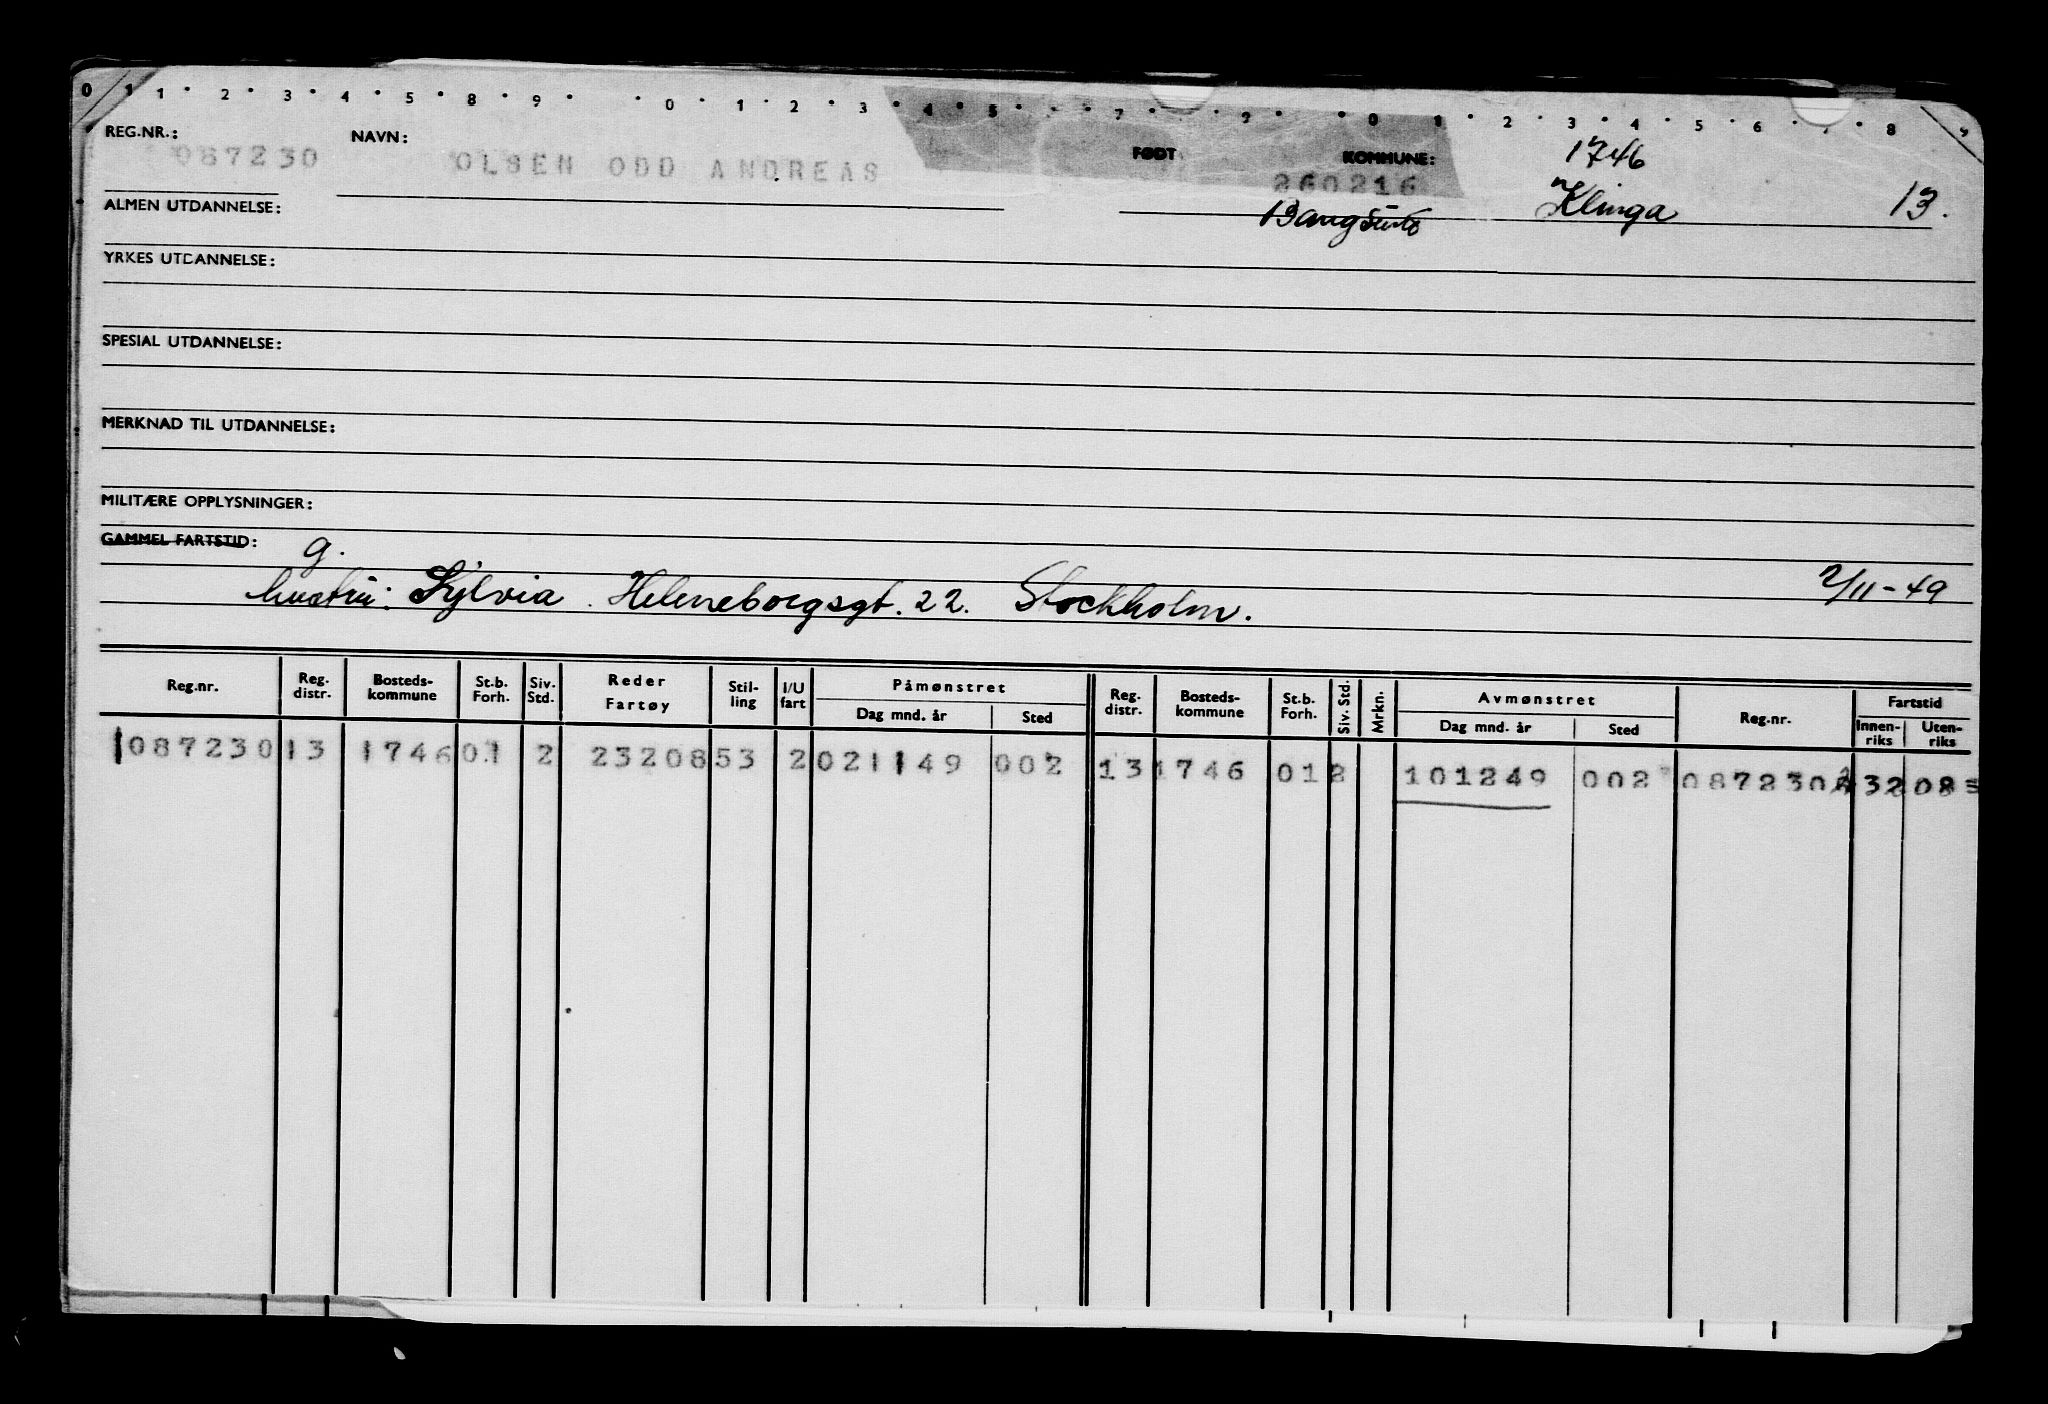 0 1 1 2 3 4 5 8 9 0 1 2 3 4 5 7 9 0 1 2 3 4 5 6 7 8 9
REG.NR.: NAVN: FØDT KOMMUNE: 1746
087230 OLSEN ODD ANDREAS 260216 Klinga 13.
ALMEN UTDANNELSE: Bangsund
YRKES UTDANNELSE:
SPESIAL UTDANNELSE:
MERKNAD TIL UTDANNELSE:
MILITÆRE OPPLYSNINGER:
GAMMEL FARTSTID: g.
hustru: Sylvia. Heleneborgsgt. 22. Stockholm. 2/11-49
Reg.nr. Reg. distr. Bosteds-kommune St.b. Forh. Siv. Std. Reder Fartøy Stil-ling I/U fart Påmønstret Dag mnd. år Sted Reg. distr. Bosteds-kommune St.b. Forh. Siv. Std. Mrkn. Avmønstret Dag mnd. år Sted Reg.nr. Fartstid Innen-riks Uten-riks
1087230 13 1746 01 2 23208 53 2 021149 002 13 1746 01 2 101249 002 087230 32 08